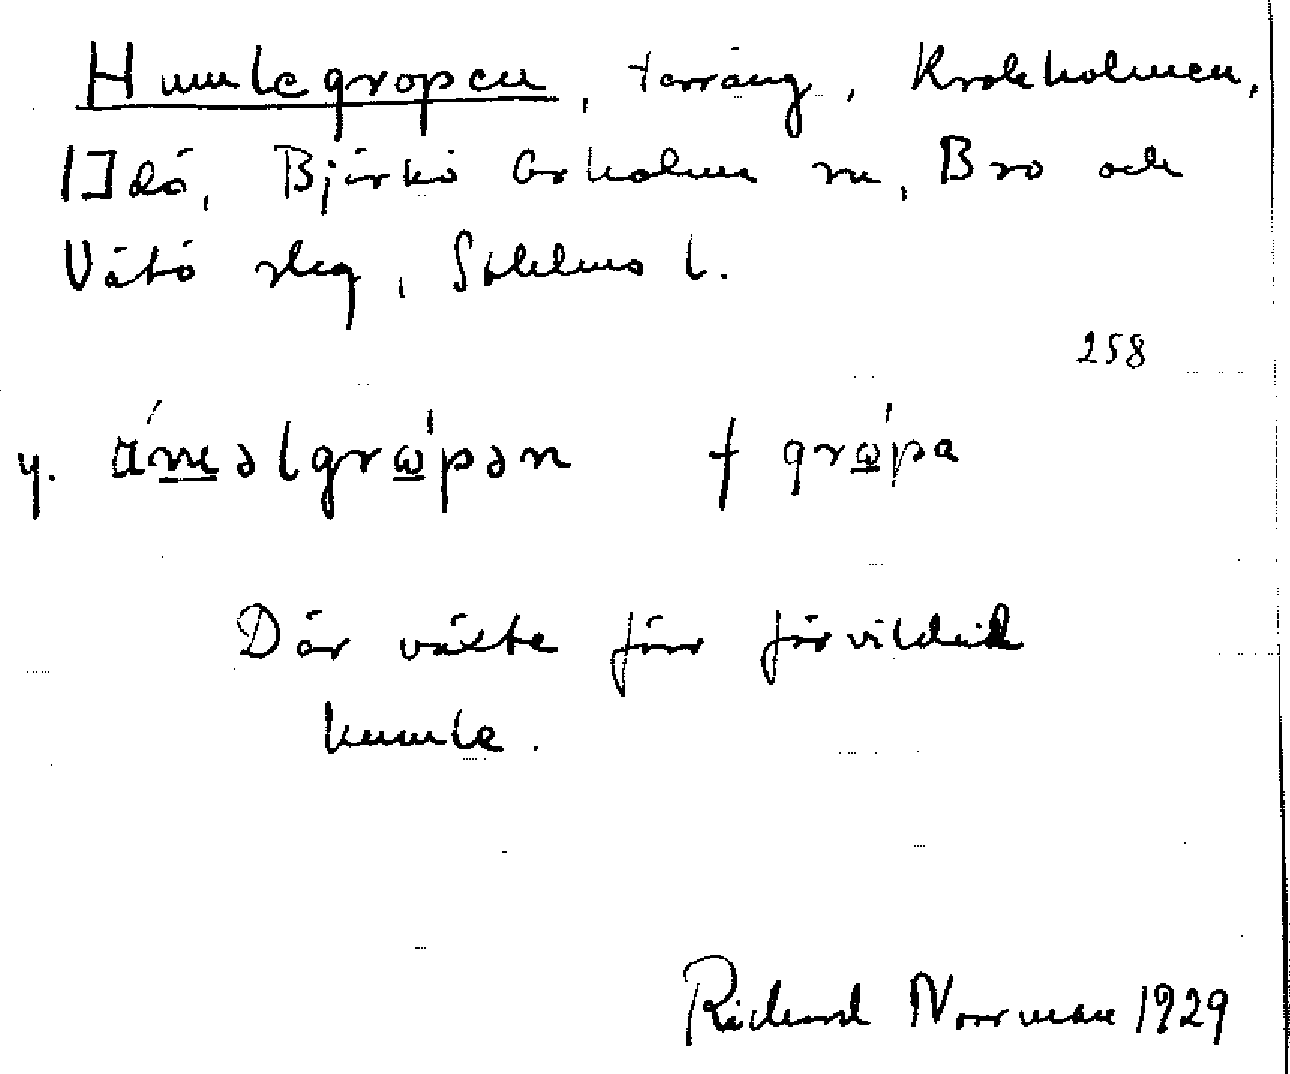 Humlegropen, terräng, Krokholmen,
Idö, Björkö Arholma sn, Bro och
Vätö slag, Sthlms l.
258
y. ɑ́məlgrωpən f grωpa
Där växte förr förvildad
humle.
Richard Norrman 1929